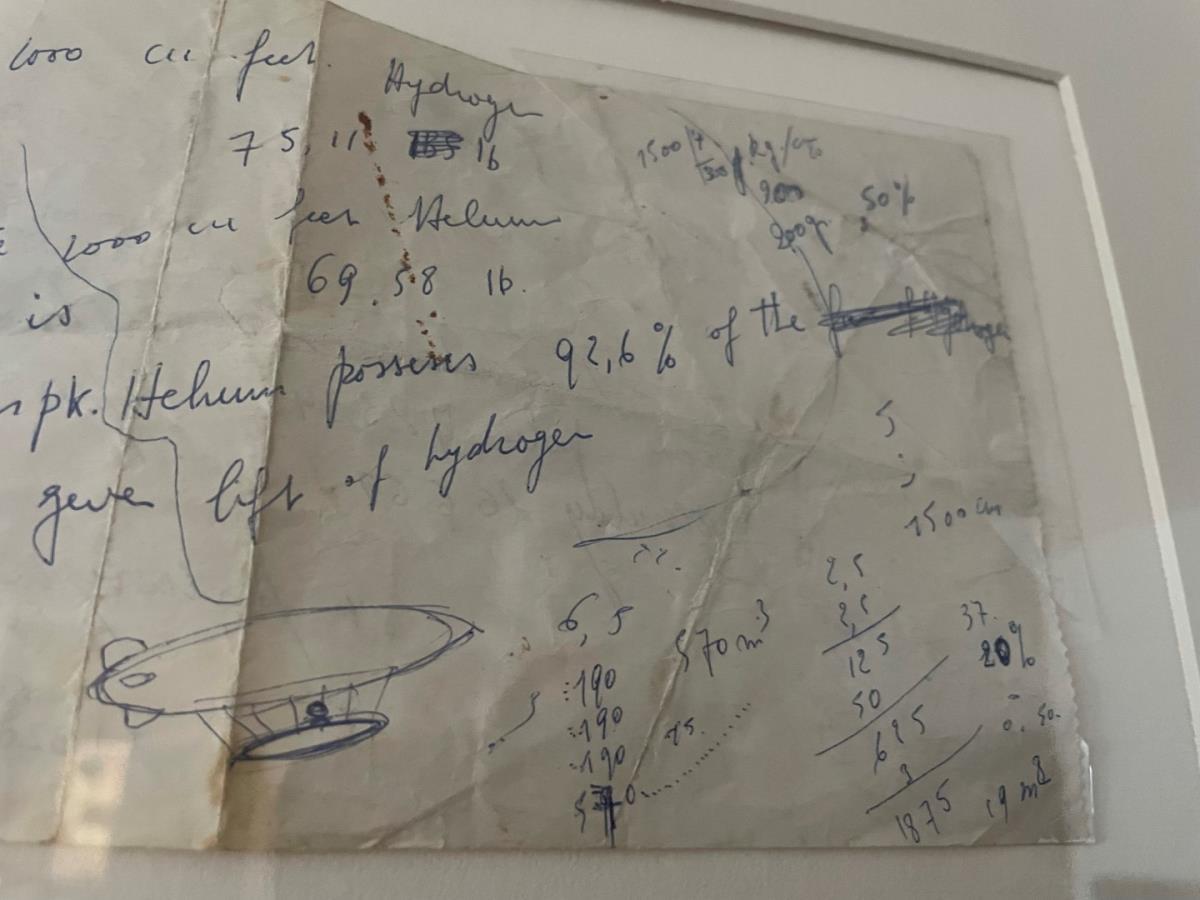 1000 cu feet.
Hydrogen
75,11 lb
1000 cu feet Helium
69.58 lb.
is
pk. Helium possesses 92,6% of the
given lift of hydrogen
1500
kg/
900
50%
200
5
1500 cm
6,5
570 m3
:190
:190
:190
570
15.
2,5
2,5
125
50
625
3
1875
37.
20%
0.50.
19 m3